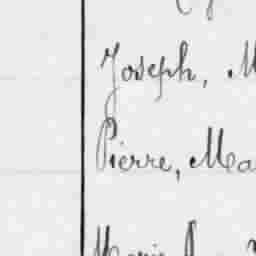 Joseph, M
Pierre, Ma